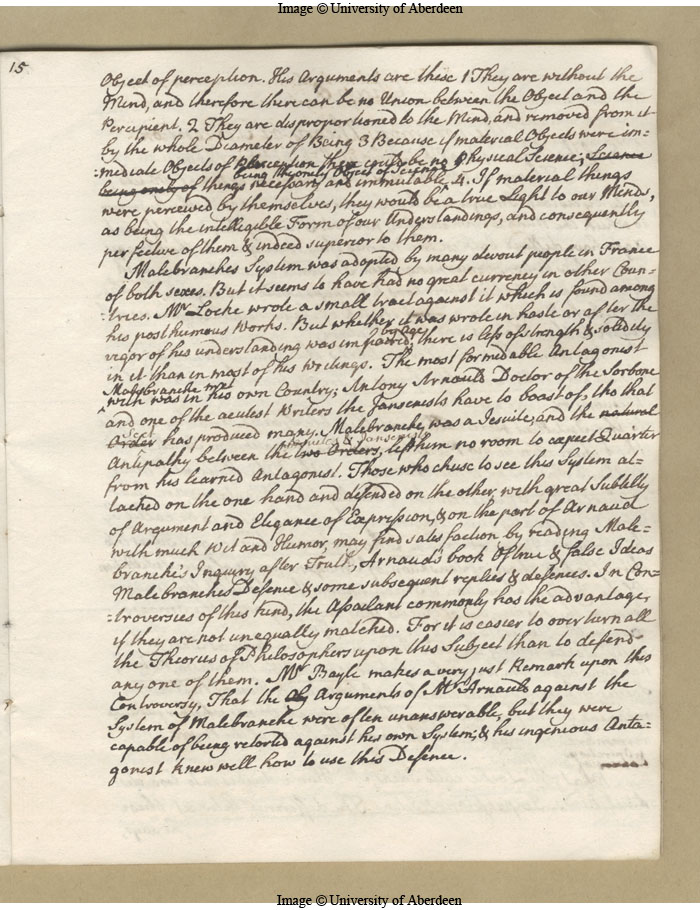 Image © University of Aberdeen
15
Object of perception. His Arguments are these 1 They are without the
Mind, and therefore there can be no Union between the Object and the
Percipient. 2 They are disproportioned to the Mind, and removed from it
by the whole Diameter of Being 3 Because if material Objects were im-
-mediate Objects of perception there could be no Physical Science; Science
being the only Object of Science
being only of things necessary and immutable. 4. If material things
were perceived by themselves, they would be a true Light to our Minds,
as being the intelligible Form of our Understandings, and consequently
perfective of them & indeed superior to them.
Malebranches System was adopted by many devout people in France
of both sexes. But it seems to have had no great currency in other Coun-
-tries. Mr Locke wrote a small tract against it which is found among
his posthumous Works. But whether it was wrote in haste or after the
vigor of his understanding was impaired by age, there is less of strength & solidity
in it than in most of his Writings. The most formidable Antagonist
Malebranche met
with was in his own Country; Antony Arnauld Doctor of the Sorbone
and one of the acutest Writers the Jansenists have to boast of, tho that
Sect
Order has produced many. Malebranche was a Jesuite, and the natural
Jesuites & Jansenists
Antipathy between the two Orders, left him no room to expect Quarter
from his learned Antagonist. Those who chuse to see this System at-
tacked on the one hand and defended on the other, with great Subtilty
of Argument and Elegance of Expression, & on the part of Arnaud
with much Wit and Humor, may find satisfaction by reading Male-
branche's Inquiry after Truth, Arnauds book Of true & false Ideas
Malebranches Defence & some subsequent replies & defences. In Con-
-troversies of this kind, the Assailant commonly has the advantage,
if they are not unequally matched. For it is easier to overturn all
the Theories of Philosophers upon this Subject than to defend
any one of them. Mr Bayle makes a very just Remark upon this
Controversy, That the Arguments of Mr Arnauld against the
System of Malebranche were often unanswerable, but they were
capable of being retorted against his own System; & his ingenious Anta-
gonist knew well how to use this Defence.
Image © University of Aberdeen